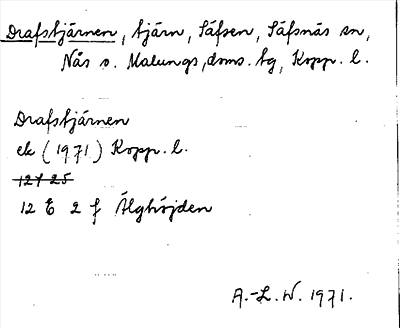 Drafstjärnen, tjärn, Säfsen, Säfsnäs sn,
Nås o. Malungs, doms. tg, Kopp. l.
Drafstjärnen
ek (1971) Kopp. l.
12 F 2 5
12 E 2 f Älghöjden
A.-L. W. 1971.